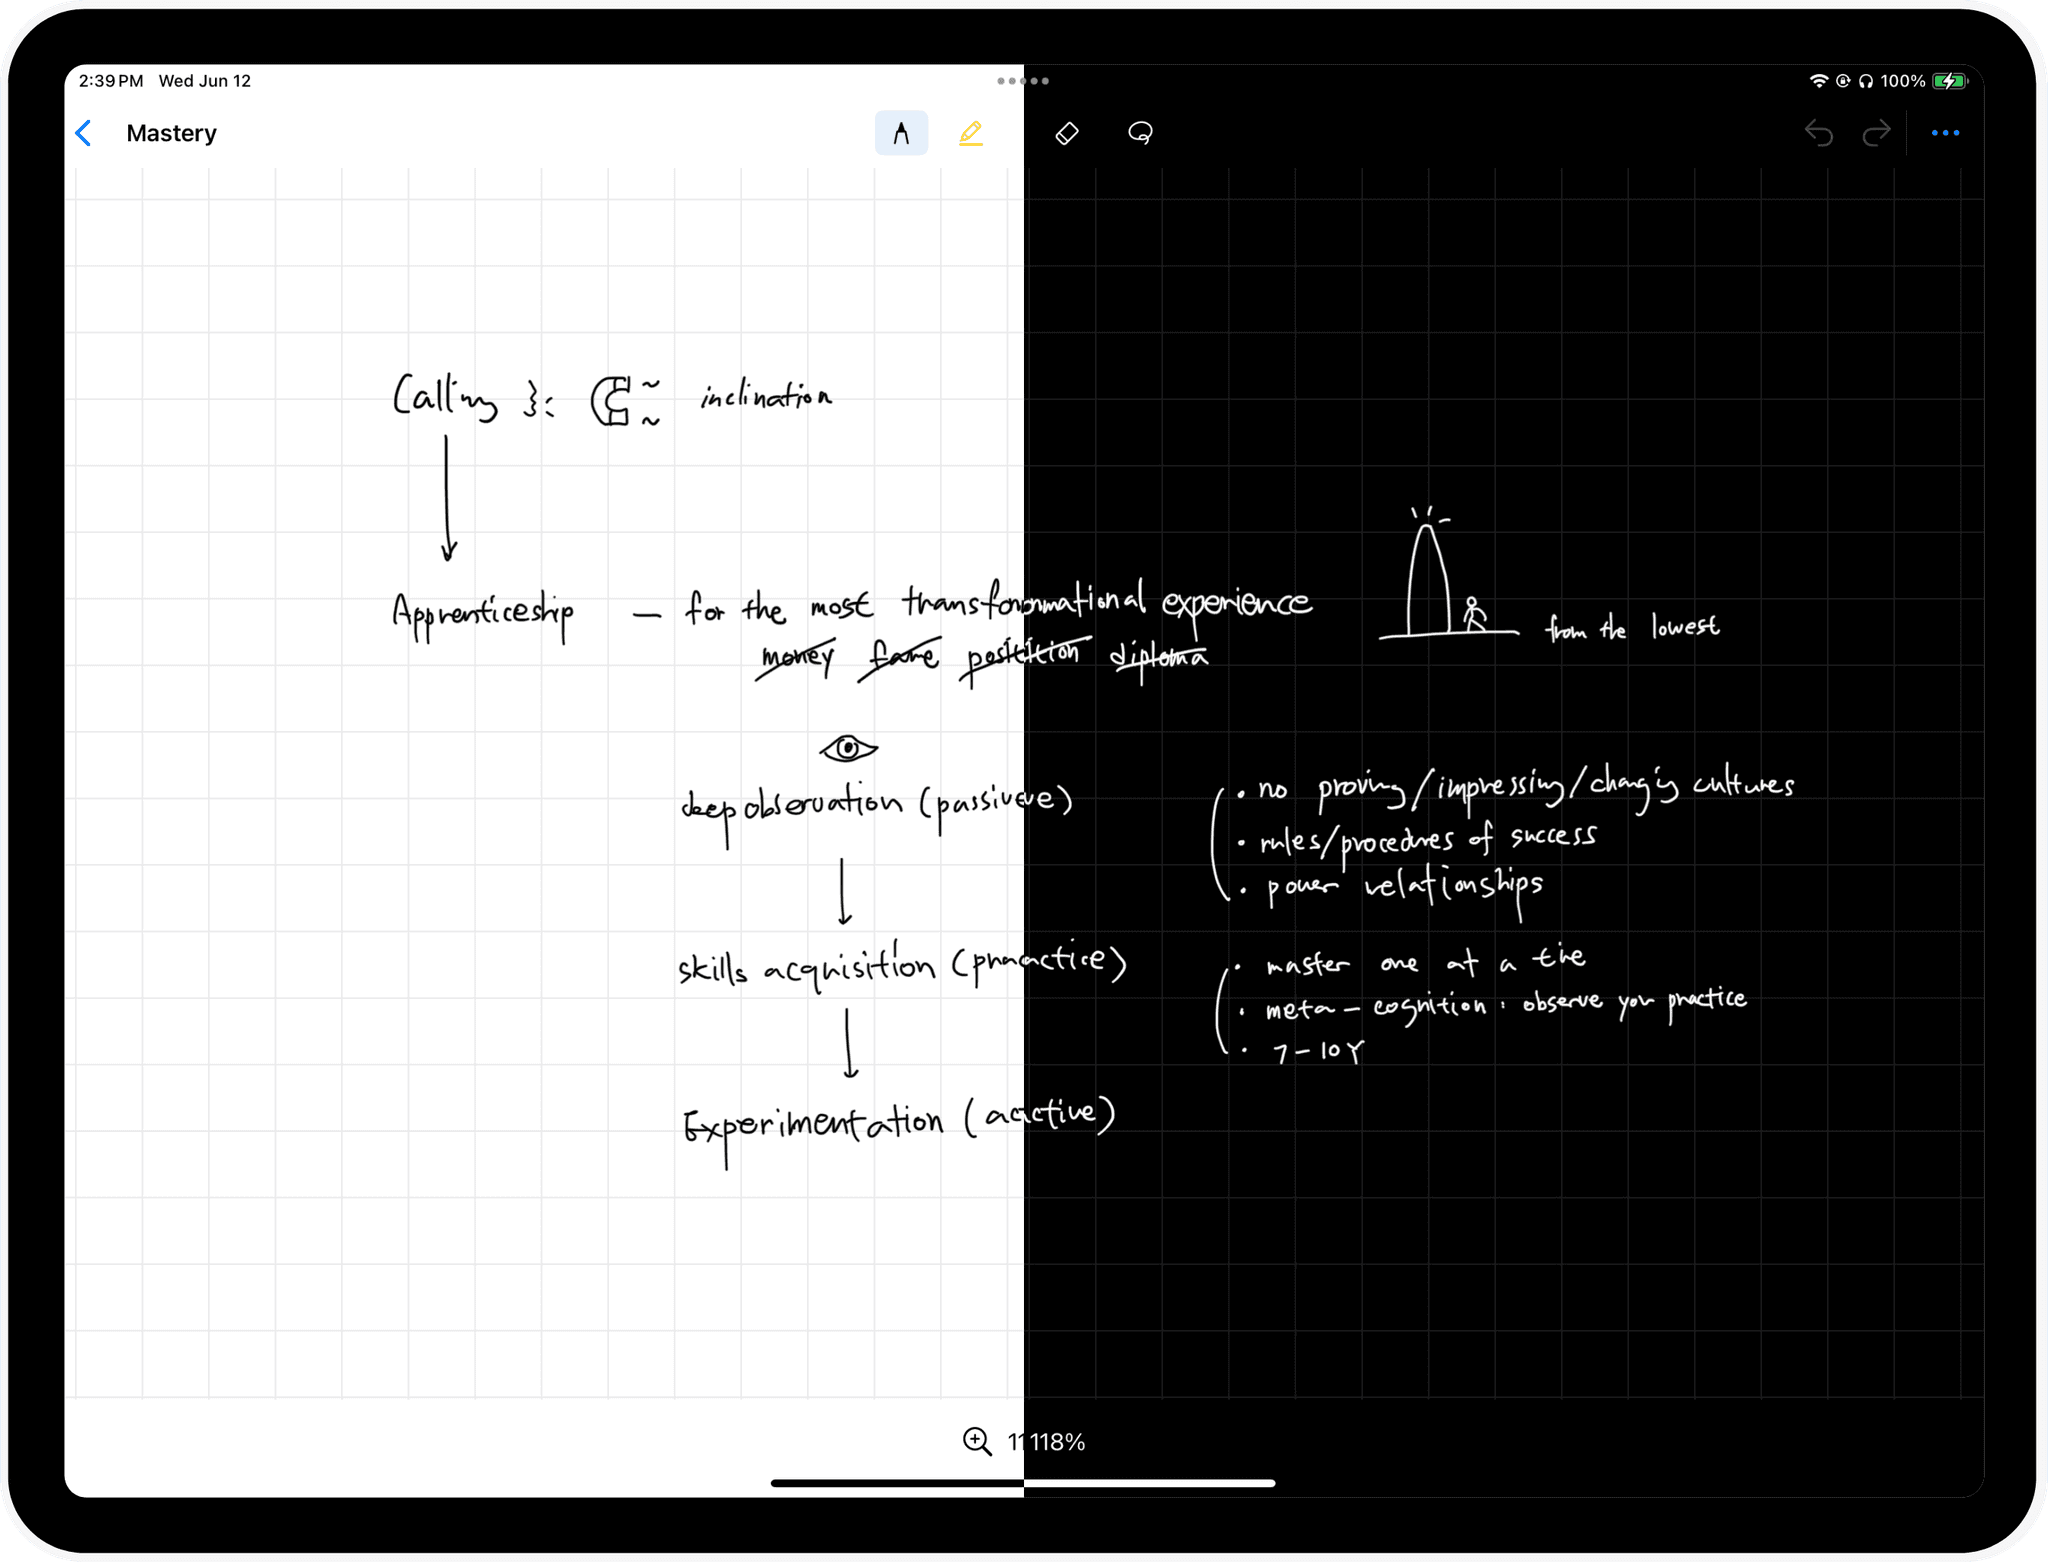 2:39 PM Wed Jun 12
100%
Mastery
Calling inclination
Apprenticeship — for the most transformational experience
money fame position diploma
from the lowest
deep observation (passive)
• no proving/impressing/changing cultures
• rules/procedures of success
• power relationships
skills acquisition (practice)
• master one at a time
• meta-cognition: observe your practice
• 7-10Y
Experimentation (active)
118%